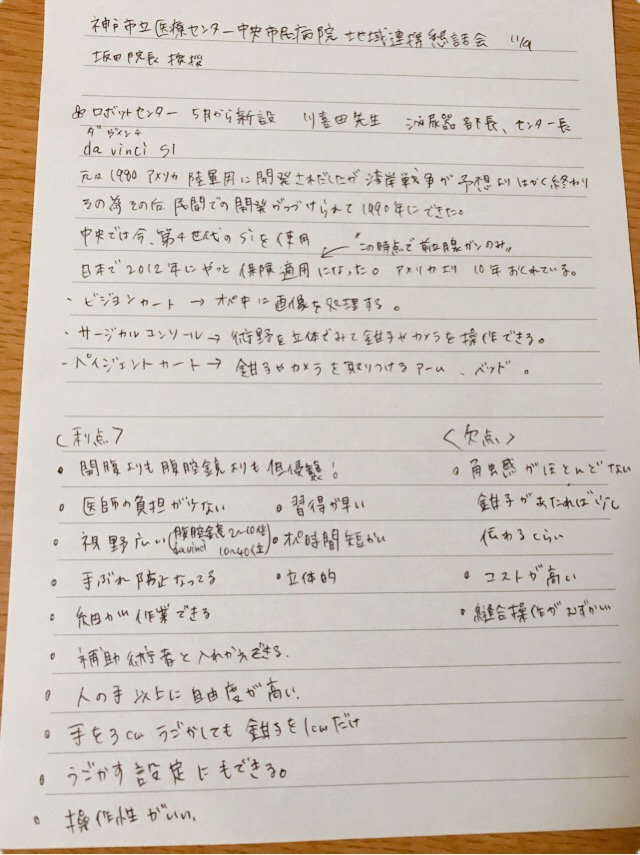 神戸市立医療センター中央市民病院 地域連携懇話会 11/9
坂田院長 挨拶
ロボットセンター 5月から新設 川喜田先生 泌尿器部長、センター長
ダヴィンチ
da vinci SI
元々1980 アメリカ 陸軍用に開発されだしたが 湾岸戦争が予想よりはやく終わり
その為その后 民間での開発がつづけられて1990年にできた。
中央では今、第4世代のSiを使用 "この時点で前立腺ガンのみ"
日本で2012年にやっと保険適用になった。 アメリカより 10年おくれている。
- ビジョンカート → オペ中に画像を処理する。
- サージカルコンソール → 術野を立体でみて鉗子やカメラを操作できる。
- ペイジェントカート → 鉗子やカメラを取りつけるアーム、ベッド。
<利点> <欠点>
• 開腹よりも腹腔鏡よりも低侵襲! • 触感がほとんどない
• 医師の負担が少ない • 習得が早い 鉗子があたれば少し
• 視野広い (腹腔鏡 2〜10倍 da vinci 10〜40倍) • オペ時間短かい 伝わるくらい
• 手ぶれ防止なってる • 立体的 • コストが高い
• 細かい作業できる • 縫合操作がむずかしい
• 補助術者と入れかえできる.
• 人の手以上に自由度が高い.
• 手を3cmうごかしても 鉗子を1cmだけ
• うごかす設定にもできる。
• 操作性がいい.